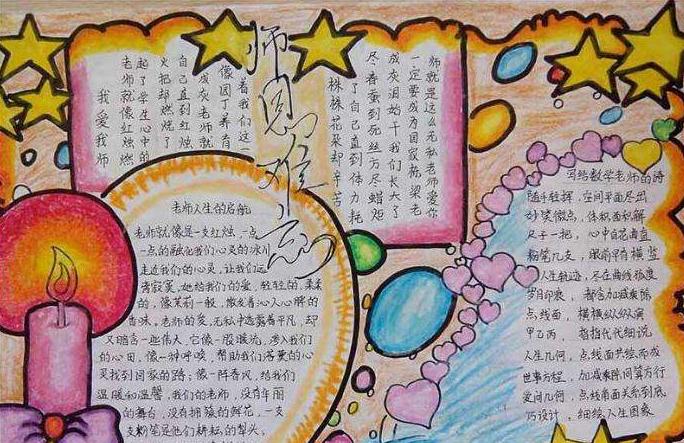 师恩难忘
我爱我师
老师就像红烛燃
起了学生心中的
火把却燃烧了
自己直到红烛
成灰老师就
像园丁养育
着我们这一
株株花朵却辛苦
了自己直到体力耗
尽春蚕到死丝方尽蜡炬
成灰泪始干我们长大了
一定要成为国家栋梁老
师就是这么无私老师爱你
老师人生的启航
老师就像是一支红烛,一点
一点的融化我们心灵的冰川
走进我们的心灵,让我们远
离寂寞,她给我们的爱,轻轻的,柔柔
的,像茉莉一般,散发着沁人心脾的
香味。老师的爱,无私中透露着平凡,却
又暗含一些伟大,它像一股暖流,渗入我们
的心田,像一种呼唤,帮助我们落寞的心
灵找到回家的路;像一阵春风,给我们
温暖和温馨,我们的老师,没有华丽
的舞台,没有的鲜花,一支
支粉笔是他们耕耘的犁头,
写给数学老师的诗
随手轻挥,空间平面尽出
妙笔微点,体积面积解
尺子一把,心中自花曲直
粉笔几支,眼前早有横竖
人生轨迹,尽在曲线弧度
岁月印痕,都含加减乘除
点线面,横横纵纵演
甲乙丙,指指代代细说
人生几何,点线面共绘而成
世事方程,加减乘除同算方行
爱问几何,点线面关系到底
巧设计,细绘人生图象